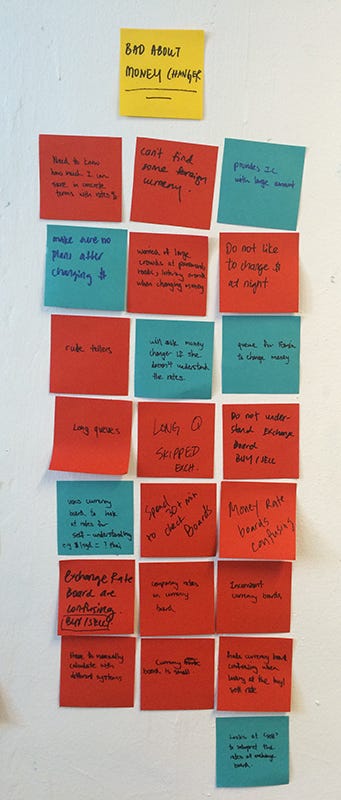 BAD ABOUT
MONEY CHANGER
Need to know
how much I can
save in concrete
terms with rates $
can't find
some foreign
currency.
provides IC
with large amount
make sure no
plans after
changing $
worried of large
crowds at
when changing money
Do not like
to change $
at night
rude tellers
will ask money
changer if she
doesn't understand
the rates.
queue for
to change money
Long queues
LONG Q
SKIPPED
EXCH.
Do not under-
stand Exchange
Board
BUY/SELL
uses currency
board to look
at rates for
self-understanding
e.g $1sgd = ?
Spend
30+ min
to check
Boards
Money Rate
boards
confusing
Exchange Rate
Board are
confusing.
BUY/SELL
comparing rates
on currency
board
Inconsistent
currency boards
Have to manually
calculate with
different systems
Currency
board is small
finds currency board
confusing when
looking at the buy/
sell rate
Looks at "sell"
to interpret the
rates at exchange
board.